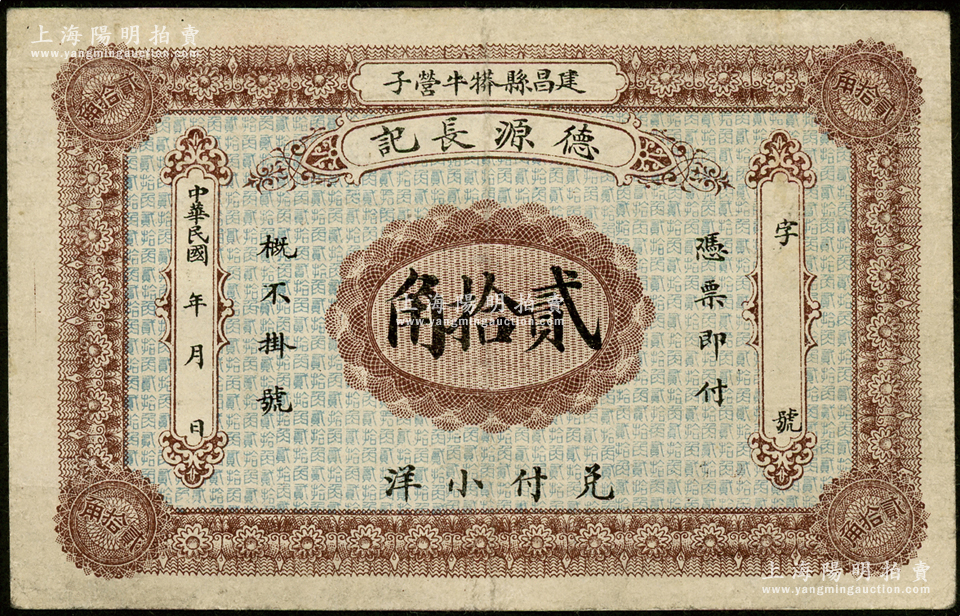 上海陽明拍賣
www.yangmingauction.com
建昌縣㹀牛營子
德源長記
貳拾角
貳拾角
字
號
憑票即付
貳拾角
概不掛號
中華民國 年 月 日
兌付小洋
貳拾角
貳拾角
上海陽明拍賣
www.yangmingauction.com
上海陽明拍賣
www.yangmingauction.com